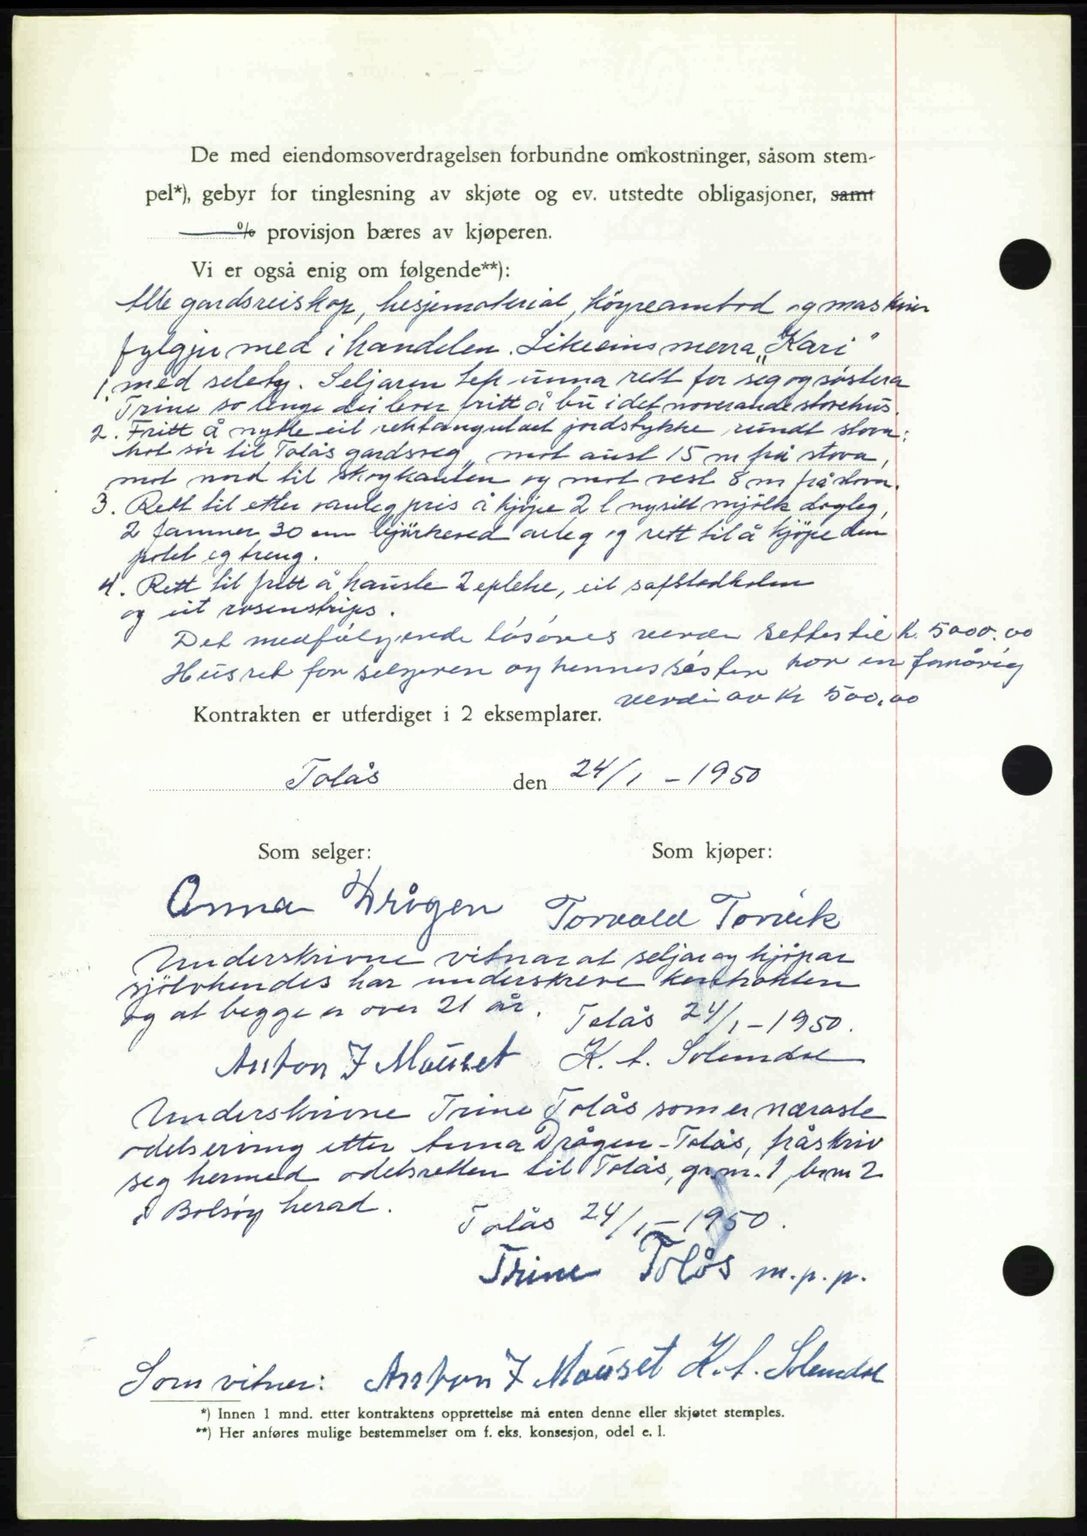 De med eiendomsoverdragelsen forbundne omkostninger, såsom stem-
pel*), gebyr for tinglesning av skjøte og ev. utstedte obligasjoner, samt
% provisjon bæres av kjøperen.
Vi er også enig om følgende**):
Alle gardsreiskap, hesjemateriat, köyreambod og maskiner
fylgju med i handelen. Likeeins merra "Kari"
1. med seletøy. Seljaren tek unna rett for seg og søstera
Trine so lenge dei lever fritt å bu i det noverande stovehus.
2. Fritt å nytte eit rektangulært jordstykke rundt stova:
mot sør til Tolås gardsveg, mot aust 15 m frå stova,
mot nord til skogkanten og mot vest 8 m frå stova.
3. Rett til etter vanleg pris å kjöpe 2 l nysilt mjölk dagleg,
2 famner 30 cm bjürkeved årleg og rett til å kjöpe den
potet eg treng.
4. Rett til fritt å hauste 2 epletre, eit
og eit
Det medfölgende lösöres verdi settes til kr. 5000.00
Husret for selgeren og hennes söster har en femårig
verdi av kr 500,00
Kontrakten er utferdiget i 2 eksemplarer.
Tolås den 24/1 - 1950
Som selger: Som kjøper:
Anna Drågen Torvald Torvik
Underskrivne vitnar at seljar og kjöpar
sjölvhendes har underskreve kontrakten
og at begge er over 21 år. Tolås 24/1 - 1950.
Anton J Mauset K. A. Solemdal
Underskrivne Trine Tolås som er næraste
odelserving etter Anna Drågen-Tolås, fråskriv
seg hermed odelsretten til Tolås, gr.nr. 1, br.nr 2
i Bolsöy herad.
Tolås 24/1 - 1950.
Trine Tolås m.p.p.
Som vitner: Anton J Mauset K. A. Solemdal
*) Innen 1 mnd. etter kontraktens opprettelse må enten denne eller skjøtet stemples.
**) Her anføres mulige bestemmelser om f. eks. konsesjon, odel e. l.